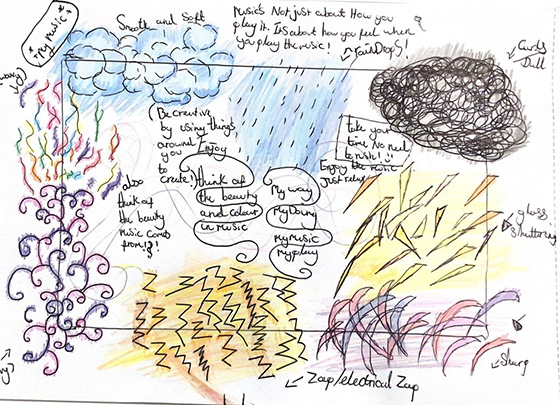 * My music *
Smooth and Soft
Music's Not just about How you
play it. It's about how you feel when
you play the music!
RainDrops!
Be creative
by using things
around
you
to
create!
Enjoy
think of
the beauty
and colour
in music
also
think of
the beauty
music comes
from!?!
My way
My Doing
My Music
My play
take your
time No need
to rush!
Enjoy the music
Just relax
Dull
glass
Shattering
Sharp
Zap/electrical Zap